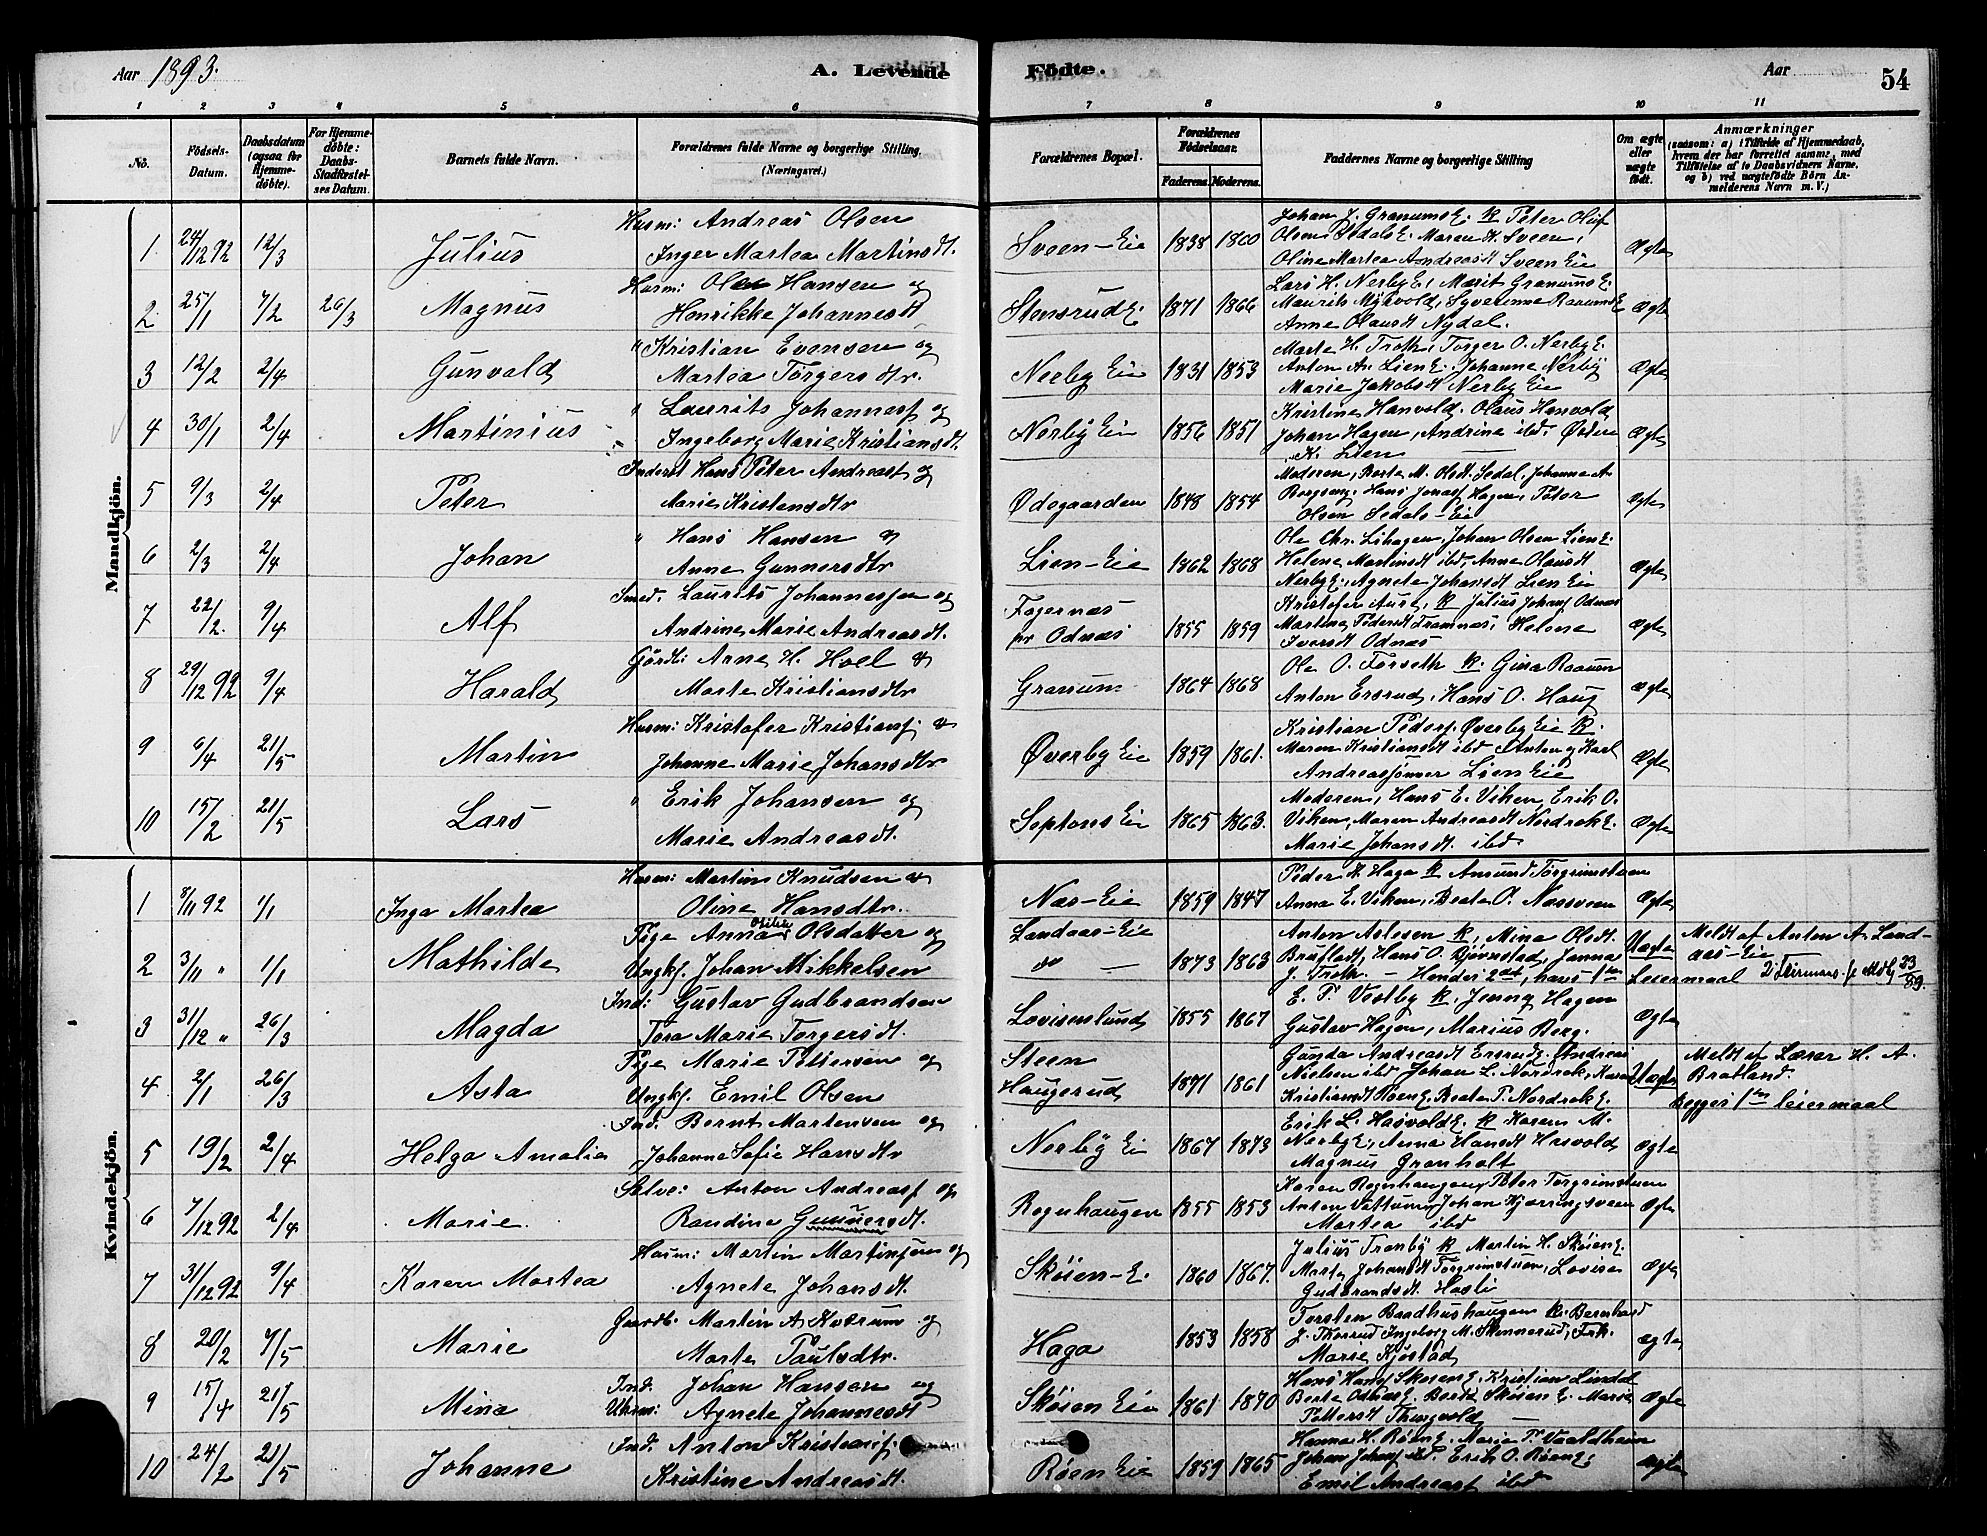 Aar 1893.
A. Levende Födte.
Aar
54
1 2 3 4 5 6 7 8 9 10 11
No.
Födsels-Datum.
Daabsdatum (ogsaa for Hjemmedöbte).
For Hjemmedöbte: Daabs-Stadfæstelses Datum.
Barnets fulde Navn.
Forældrenes fulde Navne og borgerlige Stilling. (Næringsvei.)
Forældrenes Bopæl.
Forældrenes Födselsaar.
Faderens. Moderens.
Faddernes Navne og borgerlige Stilling
Om ægte eller uægte födt.
Anmærkninger
(saasom: a) i Tilfælde af Hjemmedaab, hvem der har forrettet samme, med Tilföielse af to Daabsvidners Navne, og b) ved uægtefödte Börn Anmelderens Navn m. V.)
Mandkjön.
1. 24/12 92 12/3 Julius Husm: Andreas Olsen Inger Martea Martinsdt. Sveen-Eie 1838 1860 Johan J. Granums E. K Peter Oluf Olsen Sedals E. Maren K. Sveen, Oline Martea Andreasdt Sveen Eie Ægte
2 25/1 7/2 26/3 Magnus Husm: Ole Hansen og Henrikke Johannesdt Stensrud E. 1871 1866 Lars H. Nerby E, Marit Granums E. Maurits Myhvold, Syverinne Raaums E Anne Olausdt Nydal. Ægte
3 12/2 2/4 Gunvald " Kristian Evensen og Martea Torgersdtr. Nerby Eie 1831 1853 Marte H. Troh, Torger O. Nerby E. Anton An. Lien E. Johanne Nerby Marie Jakobsdt Nerby Eie Ægte
4 30/1 2/4 Martinius " Laurits Johannesf og Ingeborg Marie Kristiansdt. Nerby Eie 1856 1851 Kristine Hanvold. Olaus Hanvold Johan Hagen, Andrine ibd. Østen K. Lien Ægte
5 9/3 2/4 Peter Inderst Hans Peter Andreasf og Marie Kristensdtr Ødegaarden 1848 1854 Moderen, Berte M. Olsdt. Sedal, Johanne A. Borgeng. Hans Jonasf Hagen, Peter Olsen Sedals-Eie Ægte
6 2/3 2/4 Johan " Hans Hansen og Anne Gunnersdtr Lien-Eie 1862 1868 Ole Chr. Lihagen, Johan Olsen Lien E. Helene Martinsdt ibd. Anne Olausdt Nerby E., Agnete Johansdt Lien Eie Ægte
7 22/2. 9/4 Alf Smed. Laurits Johannessen og Andrine Marie Andreasdt. Fagernæs pr Odnæs 1855 1859 Kristofer K Julius Johansf Odnæs Martine Pedersdt Framnæs, Helene Iversdt Odnæs Ægte
8 29/12 92 9/4 Harald Gårdb: Arne H. Hoel & Marte Kristiansdtr Granum 1864 1868 Ole O. Forseth K. Gina Raaum Anton Ersrud, Hans O. Haug Ægte
9 6/4 21/5 Martin Husm: Kristofer Kristiansf. & Johanne Marie Johansdtr Øverby Eie 1859 1861. Kristian Pedersf. Øverby Eie K. Maren Kristiansdt ibd Anton og Karl Andreassønner Lien Eie Ægte
10 15/2 21/5 Lars " Erik Johansen og Marie Andreasdt. Septons Eie 1865 1863. Moderen, Hans E. Viken, Erik O. Viken, Maren Andreasdt Nordrok E. Marie Johansdt ibd Ægte
Kvindekjön.
1 8/11 92 1/1 Inga Martea Husm: Martin Knudsen & Oline Hansdtr. Næs-Eie 1859 1847 Peder K Haga K Amund Torgrimstuen Anna E. Viken, Beate O. Næssveen Ægte
2 3/11 " 1/1 Mathilde Pige Anna Otilie Olsdatter og Ungkf. Johan Mikkelsen Landaas-Eie do — 1873 1863 Anton Aslesen K, Mina Olsdt. Bruflat, Hans O. Bjørnstad, Janna J. Troh. — Hendes 2det, hans 1ste Uægte Leiermaal Meldt af Anton A. Landaas-Eie
3 31/12 " 26/3 Magda Ind: Gustav Gudbrandsen Tora Marie Torgersdt. Lovisenlund 1855 1867 E. P. Vestby K. Jenny Hagen Gustav Hagen, Marius Berg. Ægte
4 2/1 26/3 Asta Pige Marie Pettersen og Ungkf. Emil Olsen Steen Haugerud 1871 1861 Gunda Andreasdt Ersrud E. Andreas Nielsen ibd Johan L. Nordrok, Karen Kristiansdt Røen E. Beate P. Nordrok E. Uægte Meldt af Lærer H. A. Bratland. Begges 1ste leiermaal
5 19/2 2/4 Helga Amalie Ind. Bernt Martensen og Johanne Sofie Hansdtr Nerby Eie 1867 1873 Erik L. Hasvold E. K Karen M. Nerby E, Anna Hansdt Hasvold Magnus Granholt Ægte
6 7/12 92 2/4 Marie. Selve: Anton Andreasf og Randine Gunnersdt. Rognhaugen 1855 1853 Karen Rognhaugen, Peter Torgrimstuen Anton Vattum, Johan Kjærringsveen Martea ibd Ægte
7 31/12 92 9/4 Karen Martea Husm: Martin Martinsen og Agnete Johansdt. Skøien-E. 1860 1867. Julius Tranby K Martin H. Skøien E. Marte Johansdt Torgrimstuen, Lovise Gudbrandsdt Hasli Ægte
8 20/2 7/5 Marie Gaardb. Martin A. Kværum og Marte Paulsdtr. Haga 1853 1858 Torsten Baadhushaugen K. Bernhard J. Thorsrud Ingeborg M. Skinnerud, Frk. Marie Kjøstad Ægte
9 15/4 21/5 Mina Ind. Husm: Johan Hansen og Agnete Johannesdt Skøien Eie 1861 1870 Hans Hansf Skøien E, Kristian Lindal Berte Odnæs E. Berte Skøien E. Marie Pettersdt Thingvold — Ægte
10 24/2 21/5 Johanne Ind. Anton Kristiansf. Kristine Andreasdt. Røen Eie 1859 1865 Hanna H. Røen E. Marie P. Johan Johansf Erik O. Røen E, Emil Andreasf ibd Ægte